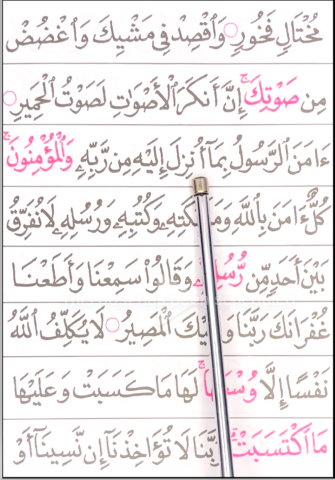 مُخْتَالٍ فَخُورٍ ۝ وَٱقْصِدْ فِى مَشْيِكَ وَٱغْضُضْ
مِن صَوْتِكَ ۚ إِنَّ أَنكَرَ ٱلْأَصْوَٰتِ لَصَوْتُ ٱلْحَمِيرِ ۝
ءَامَنَ ٱلرَّسُولُ بِمَآ أُنزِلَ إِلَيْهِ مِن رَّبِّهِۦ وَٱلْمُؤْمِنُونَ ۚ
كُلٌّ ءَامَنَ بِٱللَّهِ وَكُتُبِهِۦ وَرُسُلِهِۦ لَا نُفَرِّقُ
بَيْنَ أَحَدٍ مِّن رُّسُلِهِۦ ۚ وَقَالُوا۟ سَمِعْنَا وَأَطَعْنَا
غُفْرَانَكَ رَبَّنَا ٱلْمَصِيرُ ۝ لَا يُكَلِّفُ ٱللَّهُ
نَفْسًا إِلَّا لَهَا مَا كَسَبَتْ وَعَلَيْهَا
مَا ٱكْتَسَبَتْ ۗ لَا تُؤَاخِذْنَآ إِن نَّسِينَآ أَوْ